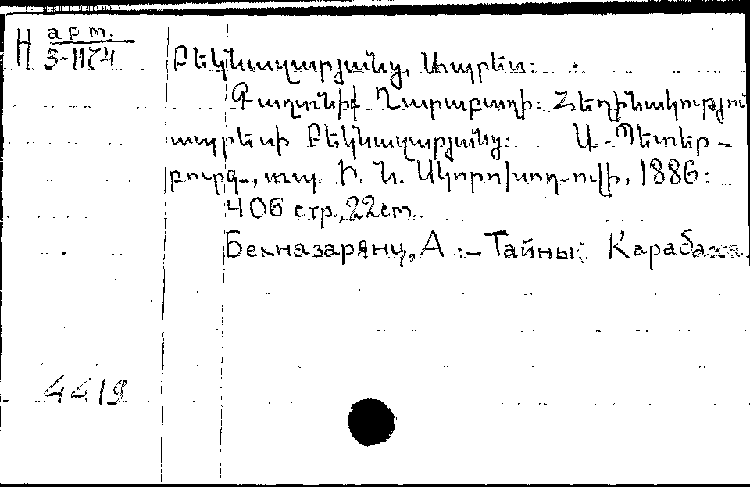 Н арт.
5-1174
Բեկնազարյանց, Ապրես:
Գաղտնիք Ղարաբաղի: Հեղինակություն
ապրեսի Բեկնազարյանց: Ս.-Պետեր-
բուրգ., տպ. Ի. Ն. Սկորոխոդովի, 1886:
406 стр., 22 cm.
Бекназарянц, А :- Тайны Карабаха.
4419